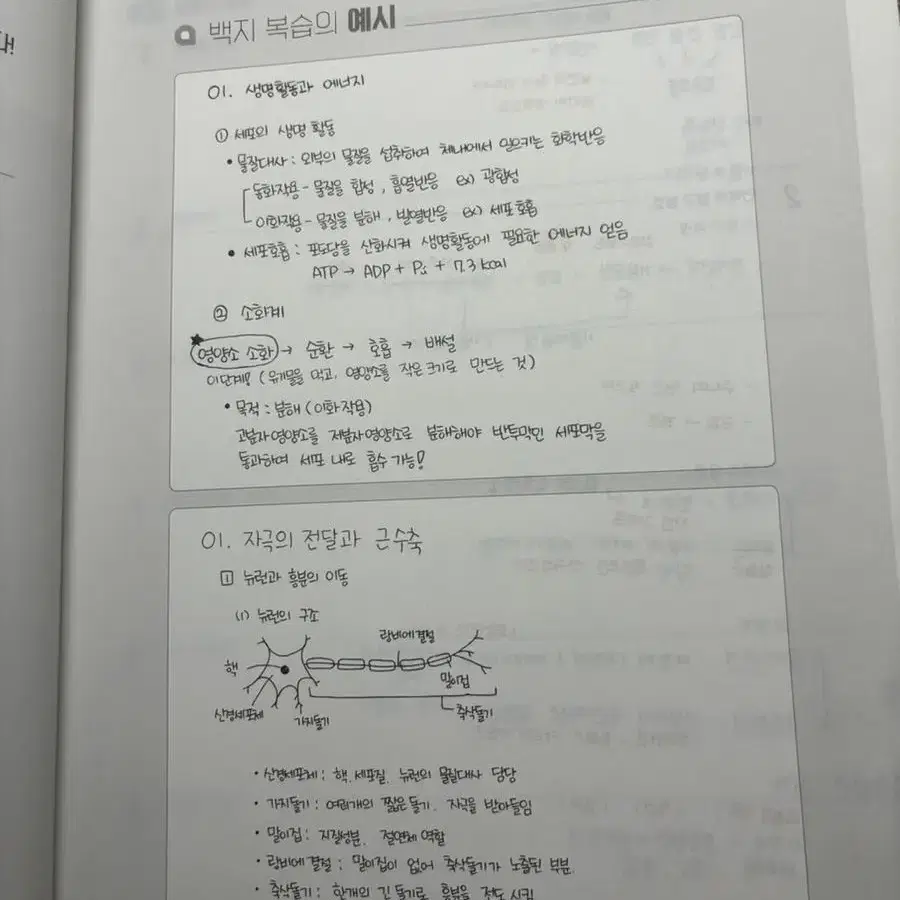 다!
백지 복습의 예시
01. 생명활동과 에너지
① 세포의 생명 활동
• 물질대사 : 외부의 물질을 섭취하여 체내에서 일으키는 화학반응
동화작용 - 물질을 합성, 흡열반응 ex) 광합성
이화작용 - 물질을 분해, 발열반응 ex) 세포호흡
• 세포호흡 : 포도당을 산화시켜 생명활동에 필요한 에너지 얻음
ATP → ADP + Pi + 7.3 kcal
② 소화계
★영양소 소화 → 순환 → 호흡 → 배설
이단계! (유기물을 먹고, 영양소를 작은 크기로 만드는 것)
• 목적 : 분해 (이화작용)
고분자영양소를 저분자영양소로 분해해야 반투막인 세포막을
통과하여 세포 내로 흡수 가능!
01. 자극의 전달과 근수축
1 뉴런과 흥분의 이동
(1) 뉴런의 구조
랑비에결절
핵
말이집
신경세포체
가지돌기
축삭돌기
• 신경세포체 : 핵. 세포질. 뉴런의 물질대사 담당
• 가지돌기 : 여러개의 짧은 돌기. 자극을 받아들임
• 말이집 : 지질성분. 절연체 역할
• 랑비에 결절 : 말이집이 없어 축삭돌기가 노출된 부분
• 축삭돌기 : 한개의 긴 돌기로 흥분을 전도 시킴